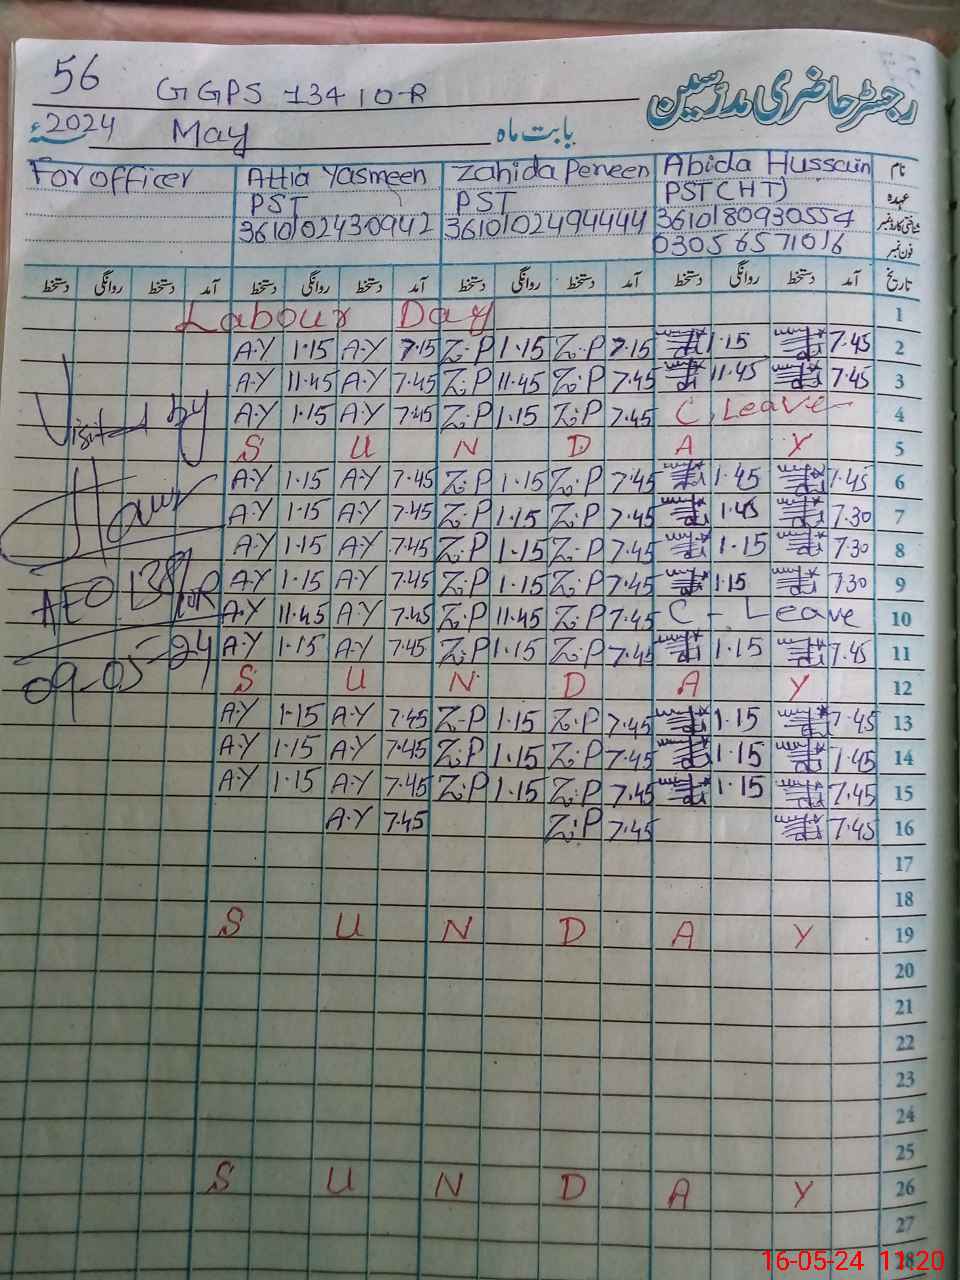 56 GGPS 134 10-R رجسٹر حاضری مدرسین
2024 سنہء May بابت ماہ
For officer Attia Yasmeen Zahida Perveen Abida Hussain نام
PST PST PST (CHT) عہدہ
3610102430942 3610102494444 3610180930554 شناختی کارڈ نمبر
03056571016 فون نمبر
دستخط روانگی دستخط آمد دستخط روانگی دستخط آمد دستخط روانگی دستخط آمد دستخط روانگی دستخط آمد تاریخ
Labour Day 1
A.Y 1.15 A.Y 7.15 Z.P 1.15 Z.P 7.15 1.15 7.45 2
A.Y 11.45 A.Y 7.45 Z.P 11.45 Z.P 7.45 11.45 7.45 3
A.Y 1.15 A.Y 7.45 Z.P 1.15 Z.P 7.45 C. Leave 4
S U N D A Y 5
A.Y 1.15 A.Y 7.45 Z.P 1.15 Z.P 7.45 1.45 7.45 6
A.Y 1.15 A.Y 7.45 Z.P 1.15 Z.P 7.45 1.45 7.30 7
A.Y 1.15 A.Y 7.45 Z.P 1.15 Z.P 7.45 1.15 7.30 8
A.Y 1.15 A.Y 7.45 Z.P 1.15 Z.P 7.45 1.15 7.30 9
A.Y 11.45 A.Y 7.45 Z.P 11.45 Z.P 7.45 C - Leave 10
A.Y 1.15 A.Y 7.45 Z.P 1.15 Z.P 7.45 1.15 7.45 11
S U N D A Y 12
A.Y 1.15 A.Y 7.45 Z.P 1.15 Z.P 7.45 1.15 7.45 13
A.Y 1.15 A.Y 7.45 Z.P 1.15 Z.P 7.45 1.15 1.45 14
A.Y 1.15 A.Y 7.45 Z.P 1.15 Z.P 7.45 1.15 7.45 15
A.Y 7.45 Z.P 7.45 7.45 16
17
18
S U N D A Y 19
20
21
22
23
24
25
S U N D A Y 26
27
28
Visited by
AEO 138/10R
09-05-24
16-05-24 11:20